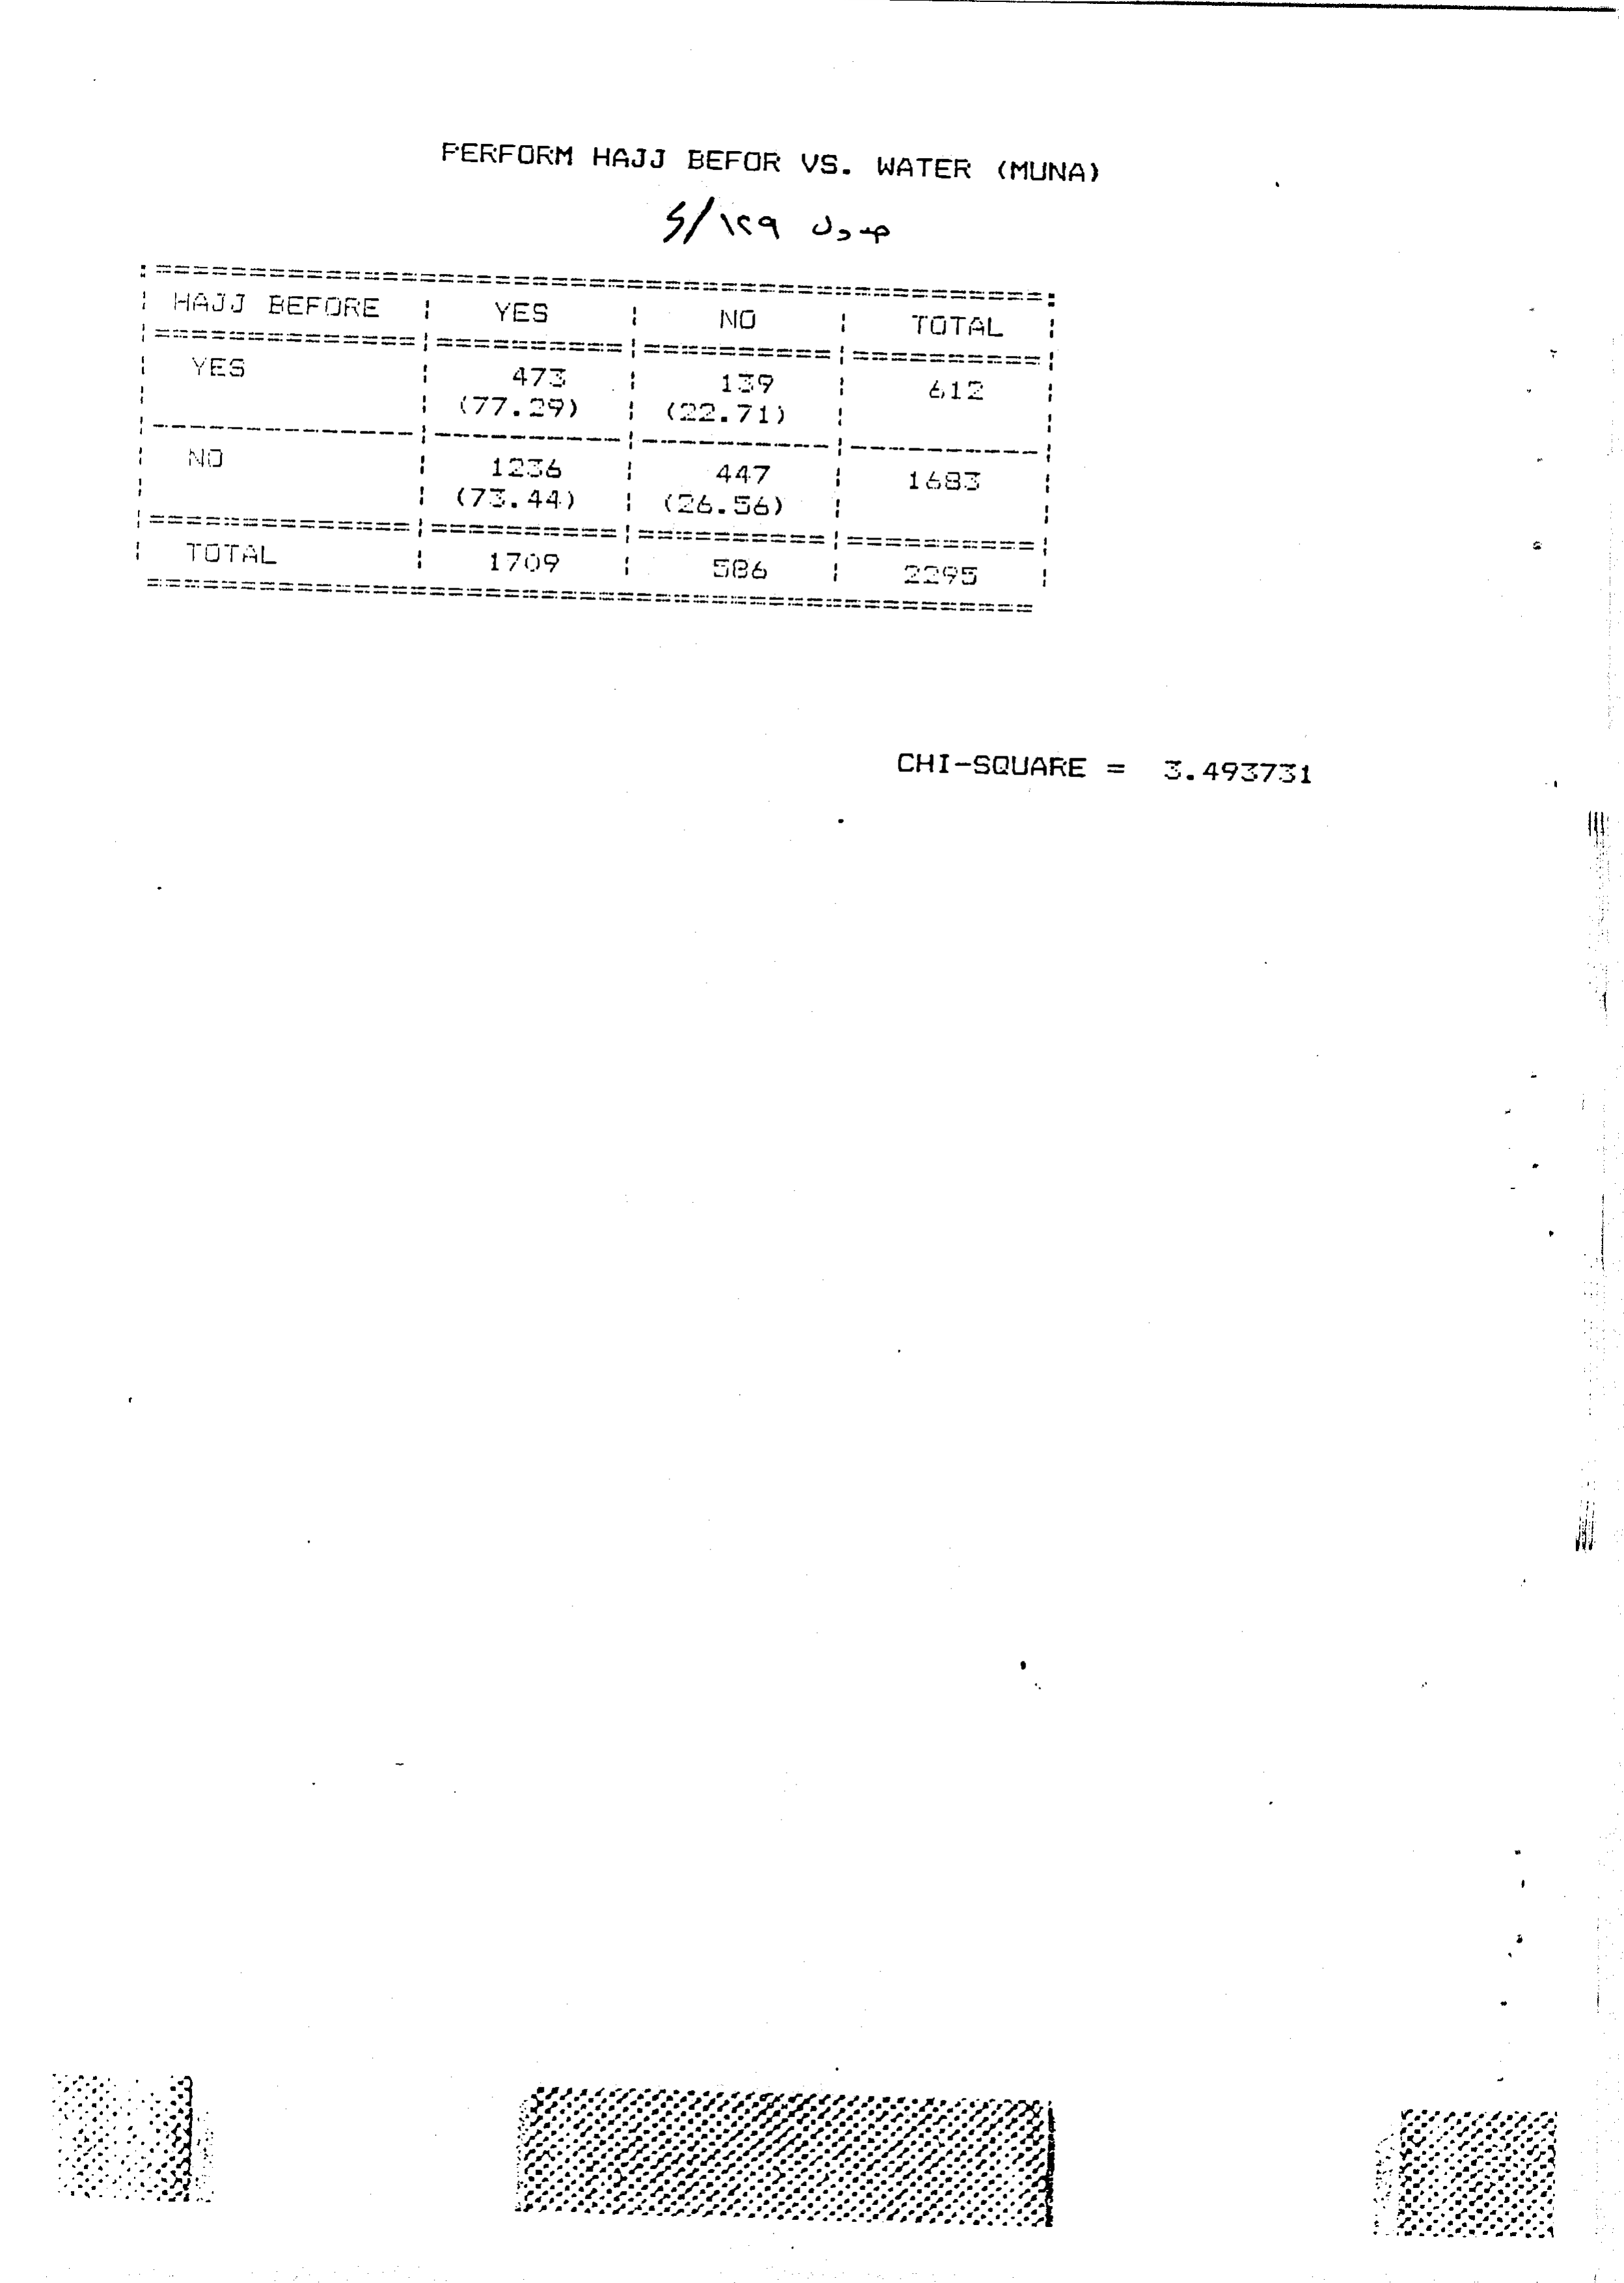 PERFORM HAJJ BEFOR VS. WATER (MUNA)
جدول ١٢٩/S
HAJJ BEFORE | YES | NO | TOTAL
YES | 473 | 139 | 612
(77.29) | (22.71)
NO | 1236 | 447 | 1683
(73.44) | (26.56)
TOTAL | 1709 | 586 | 2295
CHI-SQUARE = 3.493731